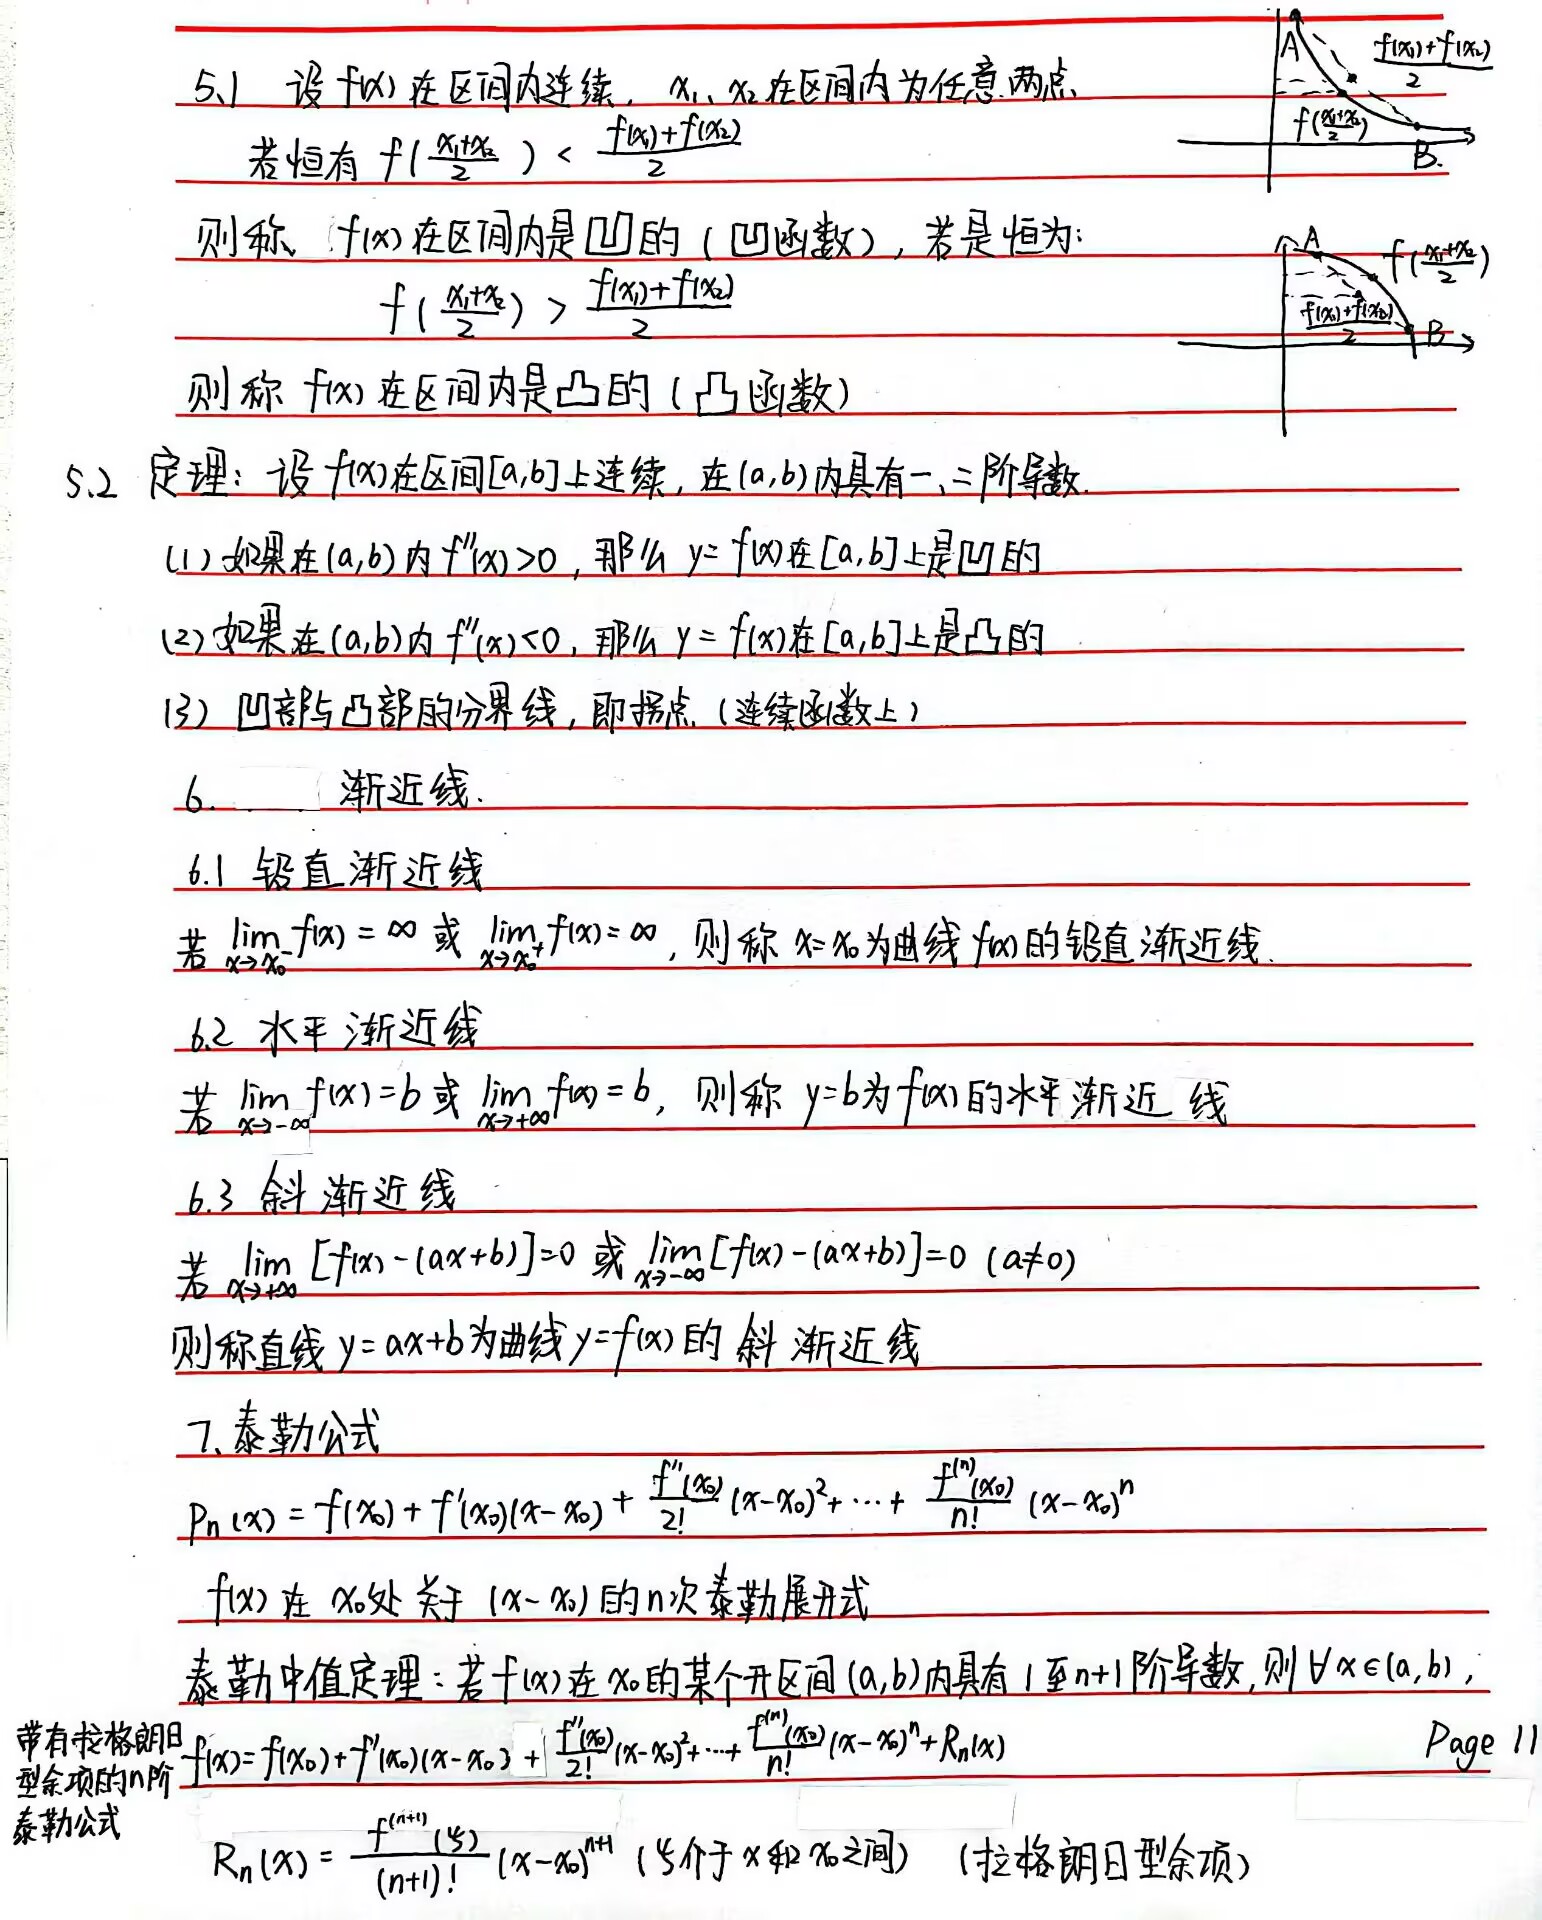 5.1 设 f(x) 在区间内连续, x₁、x₂ 在区间内为任意两点
若恒有 f((x₁+x₂)/2) < (f(x₁)+f(x₂))/2
则称 f(x) 在区间内是凹的 (凹函数), 若是恒为:
f((x₁+x₂)/2) > (f(x₁)+f(x₂))/2
则称 f(x) 在区间内是凸的 (凸函数)
A
(f(x₁)+f(x₂))/2
f((x₁+x₂)/2)
B.
A
f((x₁+x₂)/2)
(f(x₁)+f(x₂))/2
B
5.2 定理: 设 f(x)在区间[a,b]上连续, 在(a,b)内具有一、二阶导数.
(1) 如果在(a,b)内 f''(x)>0, 那么 y=f(x)在[a,b]上是凹的
(2) 如果在(a,b)内 f''(x)<0, 那么 y=f(x)在[a,b]上是凸的
(3) 凹部与凸部的分界线, 即拐点 (连续函数上)
6. 渐近线.
6.1 铅直渐近线
若 lim x→x₀⁻ f(x)=∞ 或 lim x→x₀⁺ f(x)=∞, 则称 x=x₀为曲线 f(x)的铅直渐近线.
6.2 水平渐近线
若 lim x→-∞ f(x)=b 或 lim x→+∞ f(x)=b, 则称 y=b为f(x)的水平渐近线
6.3 斜渐近线
若 lim x→+∞ [f(x)-(ax+b)]=0 或 lim x→-∞ [f(x)-(ax+b)]=0 (a≠0)
则称直线 y=ax+b为曲线y=f(x)的斜渐近线
7、泰勒公式
Pn(x) = f(x₀)+f'(x₀)(x-x₀)+ f''(x₀)/2! (x-x₀)²+⋯+ f⁽ⁿ⁾(x₀)/n! (x-x₀)ⁿ
f(x)在 x₀处关于 (x-x₀)的n次泰勒展开式
泰勒中值定理: 若f(x)在x₀的某个开区间(a,b)内具有1至n+1阶导数, 则∀x∈(a,b),
带有拉格朗日
型余项的n阶
泰勒公式
f(x)=f(x₀)+f'(x₀)(x-x₀)+ f''(x₀)/2! (x-x₀)²+⋯+ f⁽ⁿ⁾(x₀)/n! (x-x₀)ⁿ+Rn(x)
Page 11
Rn(x) = f⁽ⁿ⁺¹⁾(ξ)/(n+1)! (x-x₀)ⁿ⁺¹ (ξ介于x和x₀之间) (拉格朗日型余项)